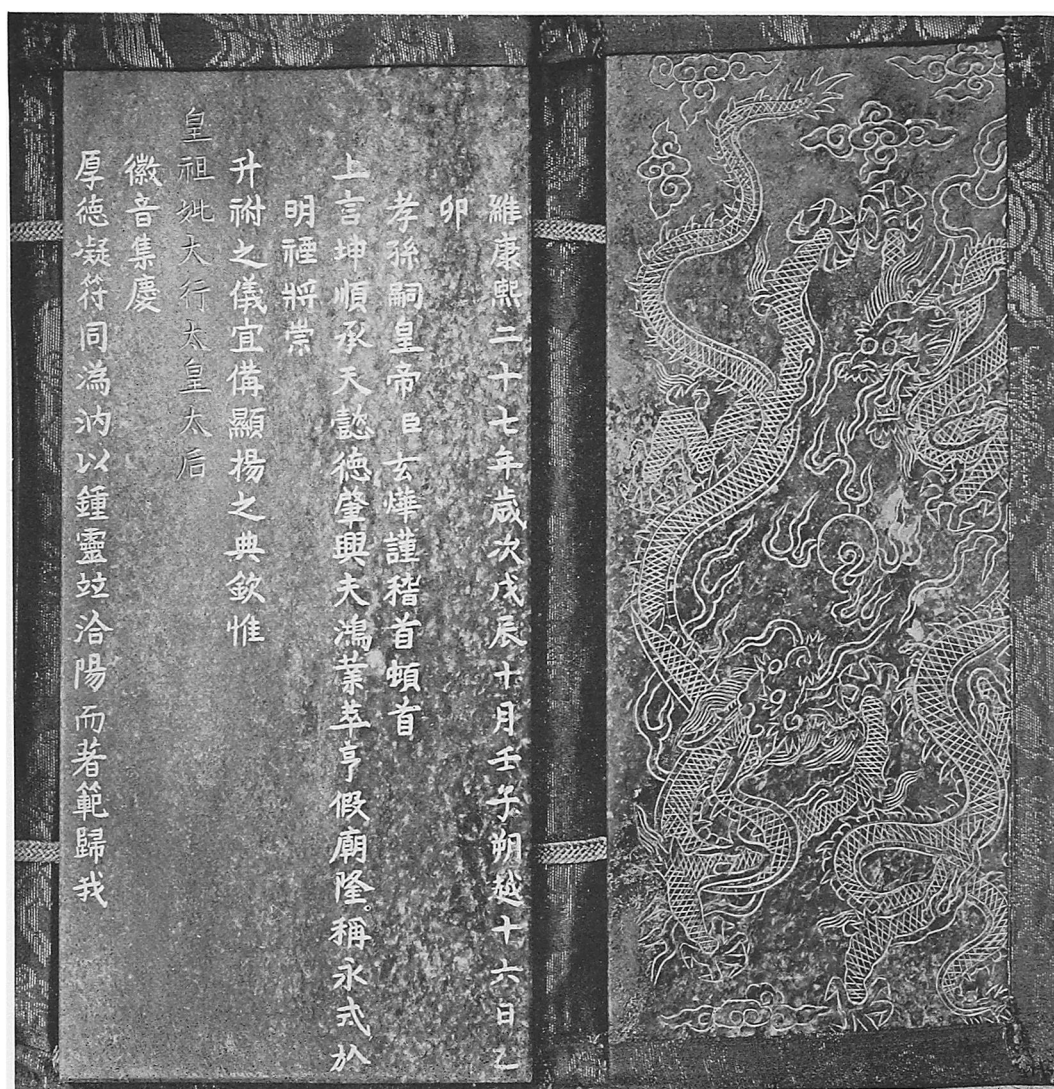 維康熙二十七年歲次戊辰十月壬子朔越十六日乙
卯
孝孫嗣皇帝臣玄燁謹稽首頓首
上言坤順承天懿德肇興夫鴻業萃亨假廟隆稱永式於
明禋將崇
升祔之儀宜備顯揚之典欽惟
皇祖妣大行太皇太后
徽音集慶
厚德凝符同潙汭以鍾靈竝洽陽而著範歸我